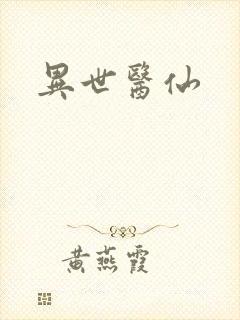 異世醫仙
黃燕霞